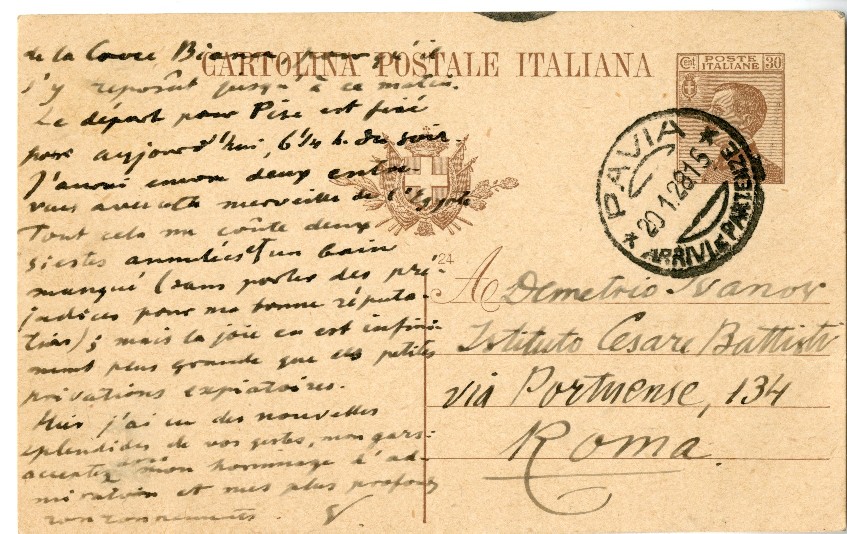 de la Croce Bianca, pour qu'il
s'y reposât jusqu'à ce matin.
Le départ pour Pise est fixé
pour aujourd'hui, 6 1/4 h. du soir.
J'aurai encore deux entre-
vues avec cette merveille de l'Egypte
Tout cela me coûte deux
siestes annulées et un bain
manqué (sans parler des pré-
judices pour ma bonne réputa-
tion); mais la joie en est infini-
ment plus grande que ces petites
privations expiatoires.
Hier j'ai eu des nouvelles
splendides de vos gestes, mon gars:
acceptez mon hommage d'ad-
miration et mes plus profonds
V
CARTOLINA POSTALE ITALIANA
Cent POSTE ITALIANE 30
PAVIA
20.1.28 16
ARRIVI E PARTENZE
24
A Demetrio Ivanov
Istituto Cesare Battisti
via Portuense, 134
Roma